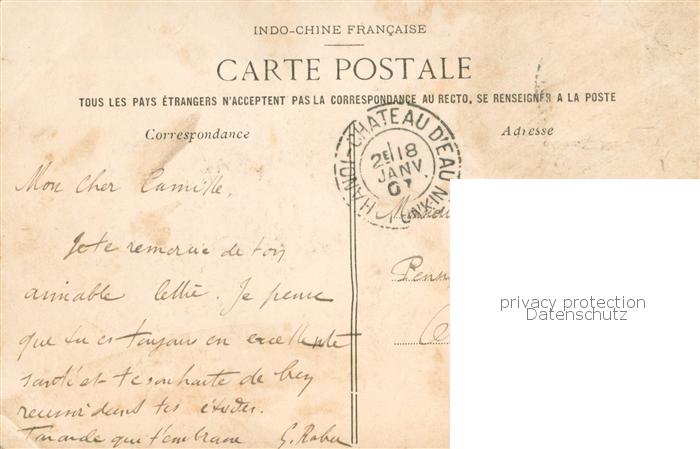 INDO-CHINE FRANÇAISE
CARTE POSTALE
TOUS LES PAYS ÉTRANGERS N'ACCEPTENT PAS LA CORRESPONDANCE AU RECTO, SE RENSEIGNER A LA POSTE
Correspondance
Adresse
HANOI-CHATEAU D'EAU TONKIN
2E 18
JANV
07
Mon cher Camille,
Je te remercie de ton
aimable lettre. Je pense
que tu es toujours en excellente
santé et te souhaite de bien
réussir dans tes études.
que t'embrasse G.
privacy protection
Datenschutz